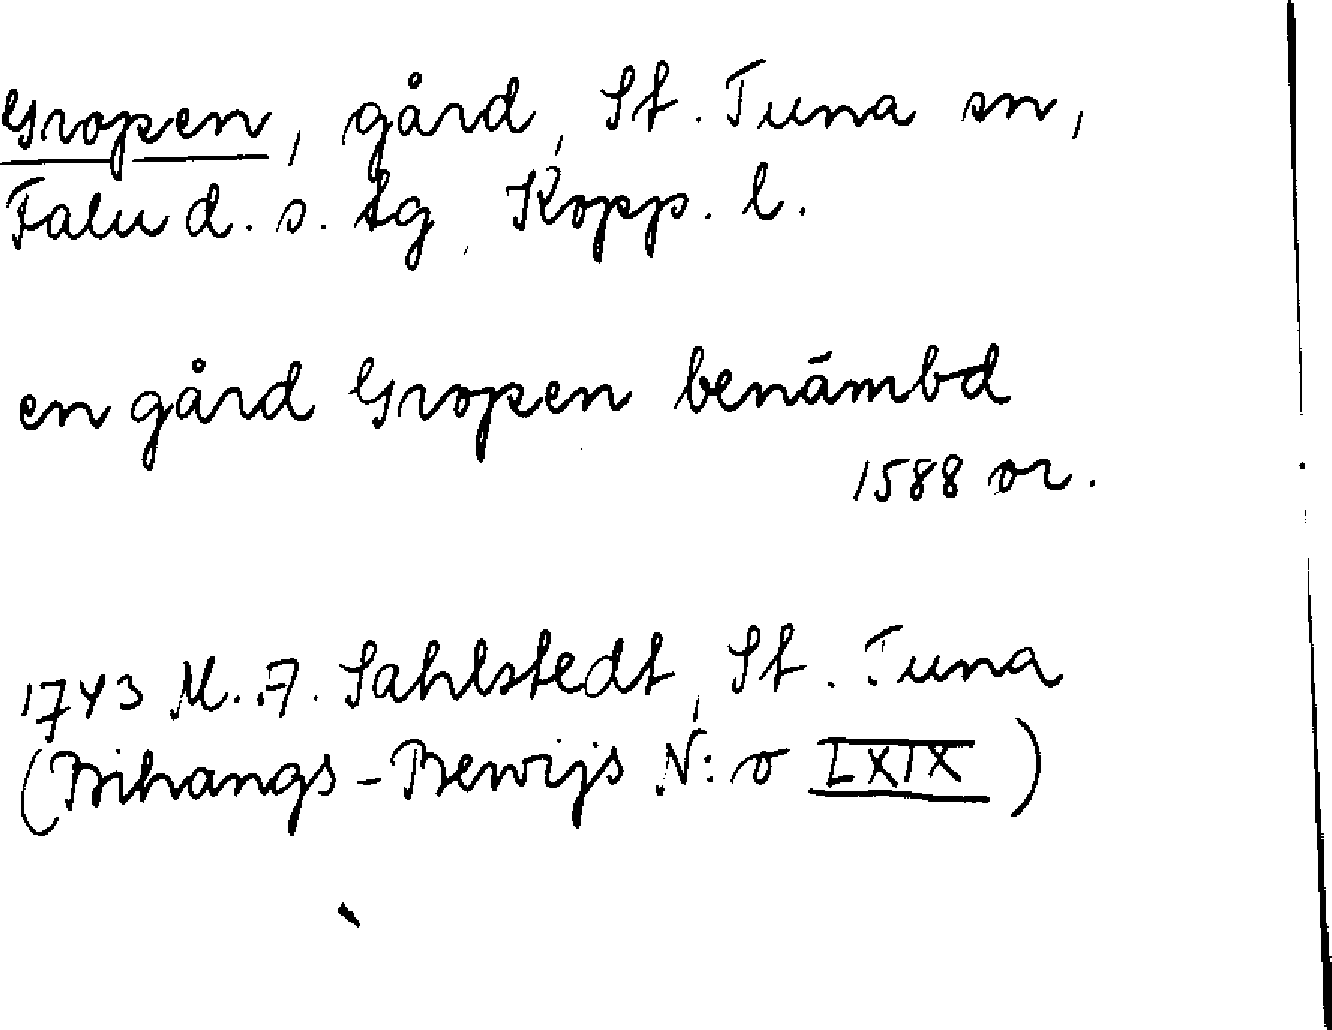 Gropen, gård, St. Tuna sn,
Falu d. s. tg, Kopp. l.
en gård Gropen benämbd
1588 or.
1743 M. A. Sahlstedt, St. Tuna
(Bihangs-Bewijs N:o LXIX)